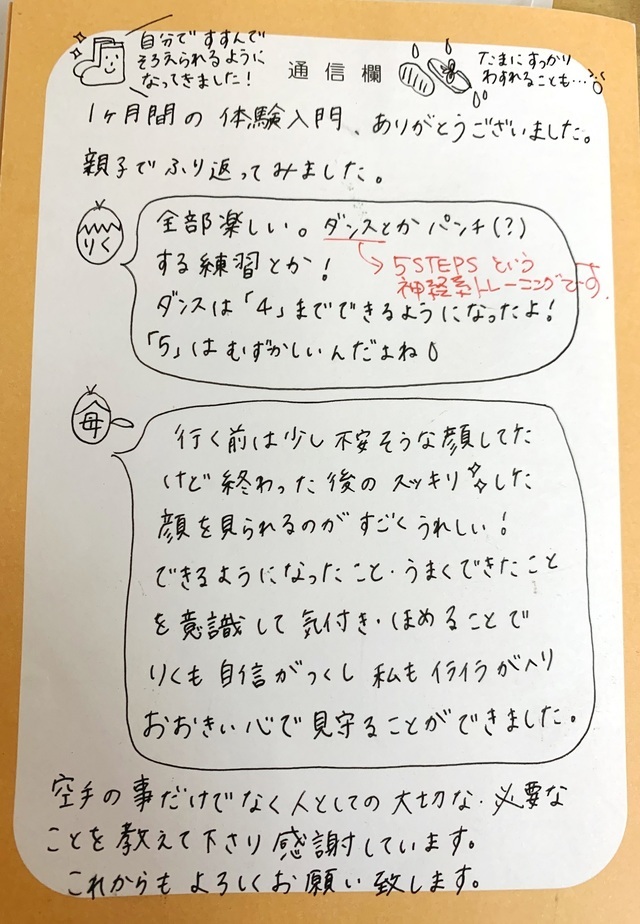 自分ですすんで
そろえられるように
なってきました!
通信欄
たまにすっかり
わすれることも…
1ヶ月間の体験入門、ありがとうございました。
親子でふり返ってみました。
りく
全部楽しい。ダンスとかパンチ(?)
する練習とか!
5STEPSという
神経系トレーニングです。
ダンスは「4」までできるようになったよ!
「5」はむずかしいんだよね
母
行く前は少し不安そうな顔してた
けど終わった後のスッキリした
顔を見られるのがすごくうれしい!
できるようになったこと・うまくできたこと
を意識して気付き・ほめることで
りくも自信がつくし私もイライラがへり
おおきい心で見守ることができました。
空手の事だけでなく人としての大切な・必要な
ことを教えて下さり感謝しています。
これからもよろしくお願い致します。